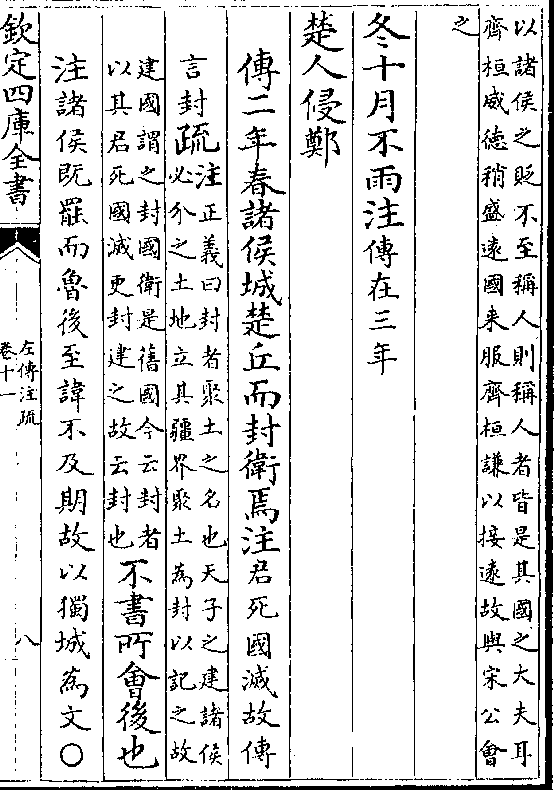 以諸侯之貶不至稱人則稱人者皆是其國之大夫耳
齊桓威德稍盛遠國来服齊桓謙以接遠故與宋公會
之
冬十月不雨注傳在三年
楚人侵鄭
傳二年春諸侯城楚丘而封衛焉注君死國滅故傳
言封疏注正義曰封者聚土之名也天子之建諸侯
必分之土地立其疆界聚土為封以記之故
建國謂之封國衛是舊國今云封者
以其君死國滅更封建之故云封也不書所會後也
注諸侯既罷而魯後至諱不及期故以獨城為文〇
欽定四庫全書
左傳注疏
卷十一
八